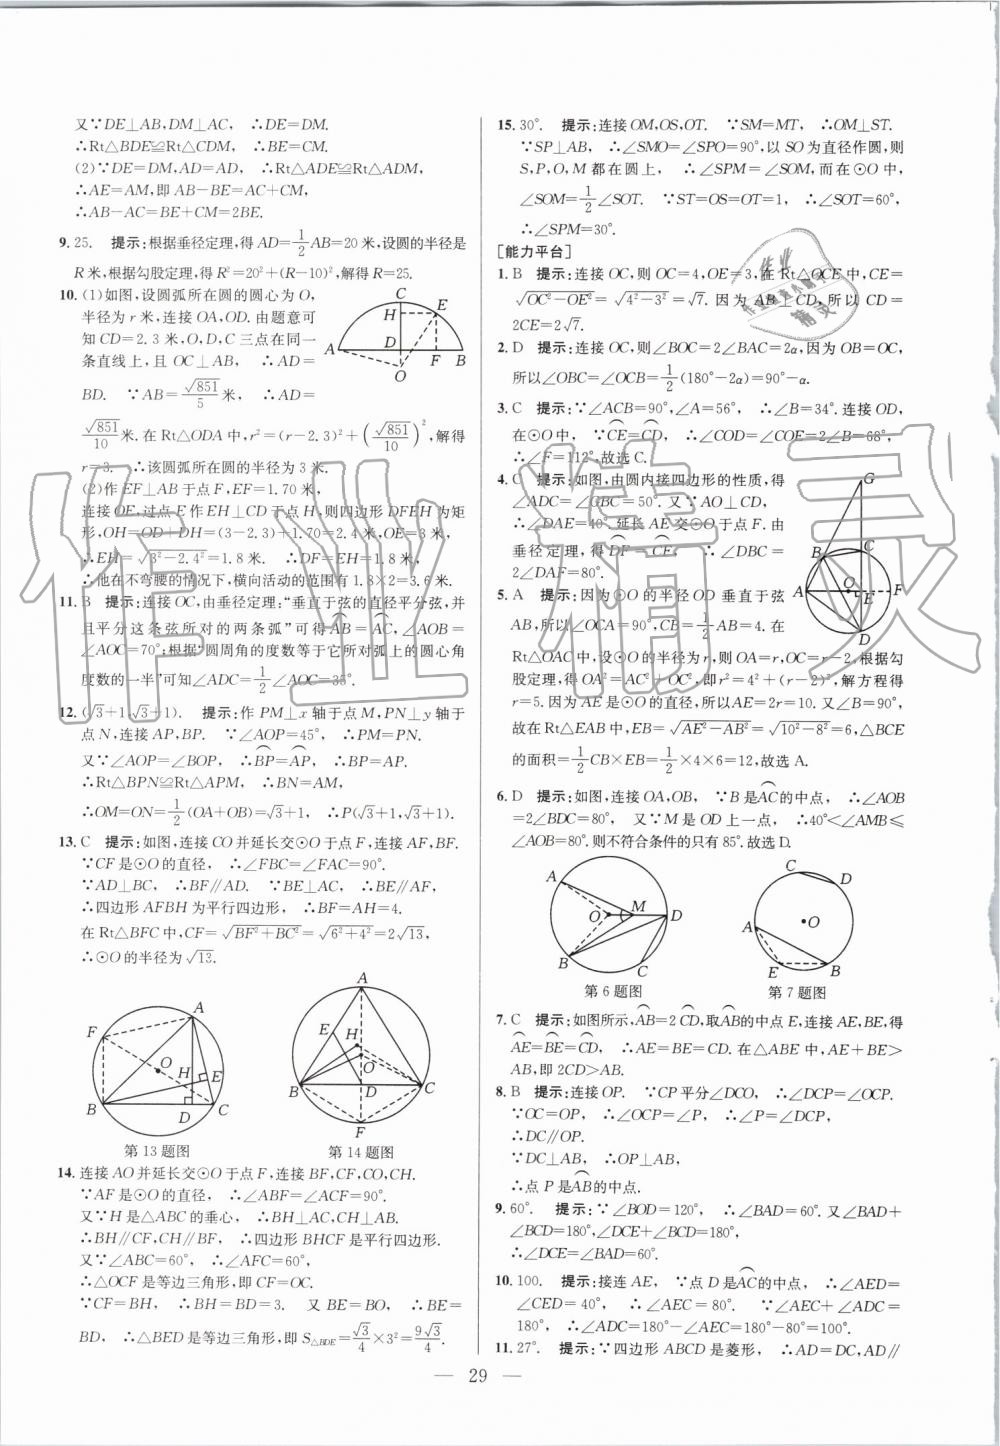 又∵DE⊥AB,DM⊥AC, ∴DE=DM.
∴Rt△BDE≌Rt△CDM, ∴BE=CM.
(2)∵DE=DM,AD=AD, ∴Rt△ADE≌Rt△ADM,
∴AE=AM,即 AB-BE=AC+CM,
∴AB-AC=BE+CM=2BE.
9. 25. 提示:根据垂径定理,得 AD=1/2AB=20 米,设圆的半径是
R 米,根据勾股定理,得 R²=20²+(R-10)²,解得 R=25.
10. (1)如图,设圆弧所在的圆的圆心为 O,
半径为 r 米,连接 OA,OD. 由题意可
知 CD=2.3 米,O,D,C 三点在同一
条直线上,且 OC⊥AB, ∴AD=
BD. ∵AB=√851/5 米, ∴AD=
√851/10 米. 在 Rt△ODA 中,r²=(r-2.3)²+(√851/10)²,解得
r=3. ∴该圆弧所在圆的半径为 3 米.
(2)作 EF⊥AB 于点 F,EF=1.70 米,
连接 OE,过点 E 作 EH⊥CD 于点 H,则四边形 DFEH 为矩
形,OH=OD+DH=(3-2.3)+1.70=2.4 米,OE=3 米,
∴EH=√(3²-2.4²)=1.8 米. ∴DF=EH=1.8 米.
∴他在不弯腰的情况下,横向活动的范围有 1.8×2=3.6 米.
C
H
E
A
D
F
B
O
11. B 提示:连接 OC,由垂径定理:“垂直于弦的直径平分弦,并
且平分这条弦所对的两条弧”可得AB⌒=AC⌒,∠AOB=
∠AOC=70°,根据“圆周角的度数等于它所对弧上的圆心角
度数的一半”可知∠ADC=1/2∠AOC=35°.
12. (√3+1,√3+1). 提示:作 PM⊥x 轴于点 M,PN⊥y 轴于
点 N,连接 AP,BP. ∵∠AOP=45°, ∴PM=PN.
又∵∠AOP=∠BOP, ∴BP⌒=AP⌒, ∴BP=AP.
∴Rt△BPN≌Rt△APM, ∴BN=AM.
∴OM=ON=1/2(OA+OB)=√3+1, ∴P(√3+1,√3+1).
13. C 提示:如图,连接 CO 并延长交⊙O 于点 F,连接 AF,BF.
∵CF 是⊙O 的直径, ∴∠FBC=∠FAC=90°.
∵AD⊥BC, ∴BF∥AD. ∵BE⊥AC, ∴BE∥AF,
∴四边形 AFBH 为平行四边形, ∴BF=AH=4.
在 Rt△BFC 中,CF=√(BF²+BC²)=√(6²+4²)=2√13,
∴⊙O 的半径为√13.
A
F
O
H
E
B
D
C
第 13 题图
A
E
H
O
B
D
C
F
第 14 题图
14. 连接 AO 并延长交⊙O 于点 F,连接 BF,CF,CO,CH.
∵AF 是⊙O 的直径, ∴∠ABF=∠ACF=90°.
又∵H 是△ABC 的垂心, ∴BH⊥AC,CH⊥AB.
∴BH∥CF,CH∥BF. ∴四边形 BHCF 是平行四边形.
又∵∠ABC=60°, ∴∠AFC=60°.
∴△OCF 是等边三角形,即 CF=OC.
∵CF=BH, ∴BH=BD=3. 又 BE=BO, ∴BE=
BD, ∴△BED 是等边三角形,即 S△BDE=√3/4×3²=9√3/4.
15. 30°. 提示:连接 OM,OS,OT. ∵SM=MT, ∴OM⊥ST.
∵SP⊥AB, ∴∠SMO=∠SPO=90°,以 SO 为直径作圆,则
S,P,O,M 都在圆上, ∴∠SPM=∠SOM,而在⊙O 中,
∠SOM=1/2∠SOT. ∵ST=OS=OT=1, ∴∠SOT=60°,
∴∠SPM=30°.
[能力平台]
1. B 提示:连接 OC,则 OC=4,OE=3,在 Rt△OCE 中,CE=
√(OC²-OE²)=√(4²-3²)=√7. 因为 AB⊥CD,所以 CD=
2CE=2√7.
2. D 提示:连接 OC,则∠BOC=2∠BAC=2α,因为 OB=OC,
所以∠OBC=∠OCB=1/2(180°-2α)=90°-α.
3. C 提示:∵∠ACB=90°,∠A=56°, ∴∠B=34°. 连接 OD,
在⊙O 中, ∵CE⌒=CD⌒, ∴∠COD=∠COE=2∠B=68°,
∴∠F=112°.故选 C.
4. C 提示:如图,由圆内接四边形的性质,得
∠ADC=∠GBC=50°. 又∵AO⊥CD,
∴∠DAE=40°,延长 AE 交⊙O 于点 F. 由
垂径定理,得DF⌒=CF⌒, ∴∠DBC=
2∠DAF=80°.
G
B
C
A
O
E
F
D
5. A 提示:因为⊙O 的半径 OD 垂直于弦
AB,所以∠OCA=90°,CB=1/2AB=4. 在
Rt△OAC 中,设⊙O 的半径为 r,则 OA=r,OC=r-2,根据勾
股定理,得 OA²=AC²+OC²,即 r²=4²+(r-2)²,解方程得
r=5. 因为 AE 是⊙O 的直径,所以 AE=2r=10. 又∠B=90°,
故在 Rt△EAB 中,EB=√(AE²-AB²)=√(10²-8²)=6,△CBE
的面积=1/2CB×EB=1/2×4×6=12,故选 A.
6. D 提示:如图,连接 OA,OB, ∵B 是AC⌒的中点, ∴∠AOB
=2∠BDC=80°, 又∵M 是 OD 上一点, ∴40°<∠AMB≤
∠AOB=80°.则不符合条件的只有 85°.故选 D.
A
O
M
D
B
C
第 6 题图
C
D
O
A
E
B
第 7 题图
7. C 提示:如图所示,AB⌒=2CD⌒,取AB⌒的中点 E,连接 AE,BE,得
AE⌒=BE⌒=CD⌒, ∴AE=BE=CD. 在△ABE 中,AE+BE>
AB,即 2CD>AB.
8. B 提示:连接 OP. ∵CP 平分∠DCO, ∴∠DCP=∠OCP.
∵OC=OP, ∴∠OCP=∠P, ∴∠P=∠DCP,
∴DC∥OP.
∵DC⊥AB, ∴OP⊥AB,
∴点 P 是AB⌒的中点.
9. 60°. 提示:∵∠BOD=120°, ∴∠BAD=60°. 又∠BAD+
∠BCD=180°,∠DCE+∠BCD=180°,
∴∠DCE=∠BAD=60°.
10. 100. 提示:接连 AE, ∵点 D 是AC⌒的中点, ∴∠AED=
∠CED=40°, ∴∠AEC=80°. ∵∠AEC+∠ADC=
180°, ∴∠ADC=180°-∠AEC=180°-80°=100°.
11. 27°. 提示:∵四边形 ABCD 是菱形, ∴AD=DC,AD∥
— 29 —
作业精灵